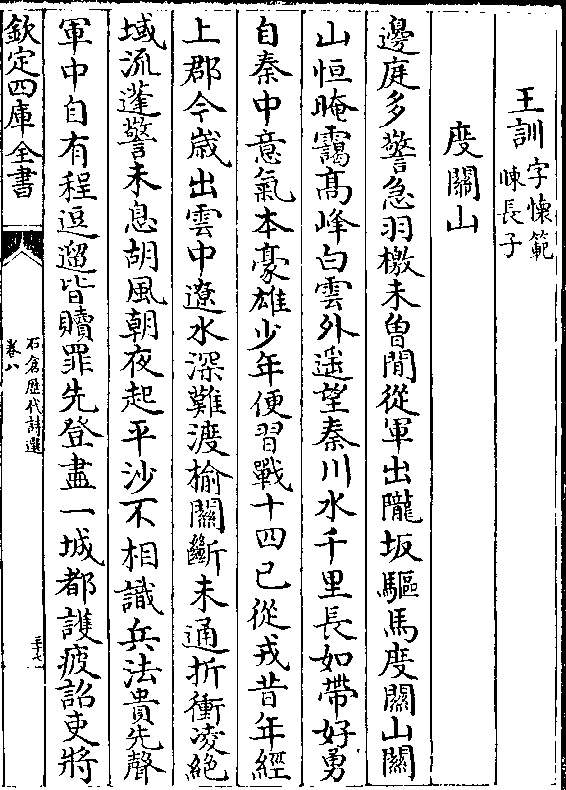 王訓字懐範
暕長子
度關山
邊庭多警急羽檄未曽閒從軍出隴坂驅馬度關山關
山恒晻靄高峰白雲外遥望秦川水千里長如帶好勇
自秦中意氣本豪雄少年便習戰十四已從戎昔年經
上郡今歳出雲中遼水深難渡榆關斷未通折衝凌絶
域流蓬警未息胡風朝夜起平沙不相識兵法貴先聲
軍中自有程逗遛皆贖罪先登盡一城都䕶疲詔吏將
欽定四庫全書
石倉歴代詩選
卷八
三十七